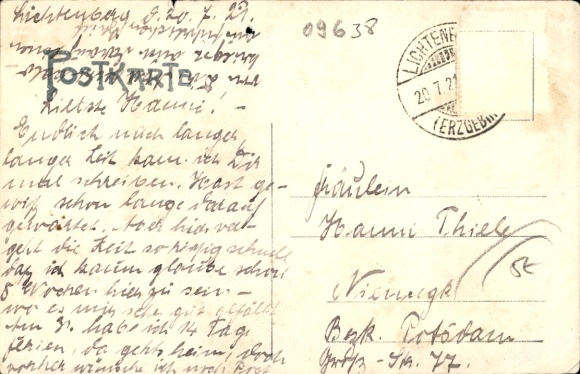 Lichtenberg, d. 20. 7. 21.
09638
POSTKARTE
Liebste Hanni! -
Endlich nach langer,
langer Zeit kann ich Dir
mal schreiben. Hast ge-
wiß schon lange darauf
gewartet. Aber hier ver-
geht die Zeit so riesig schnell
daß ich kaum glaube schon
8 Wochen hier zu sein -
wo es mir sehr gut gefällt.
Am 31. habe ich 14 Tage
Ferien, da gehts heim, doch
vorher wünsche ich noch Post
LICHTENB
20.7.21
(ERZGEB
Fräulein
Hanni Thiele
Niemegk
Bezk. Potsdam
Großstr. 77.